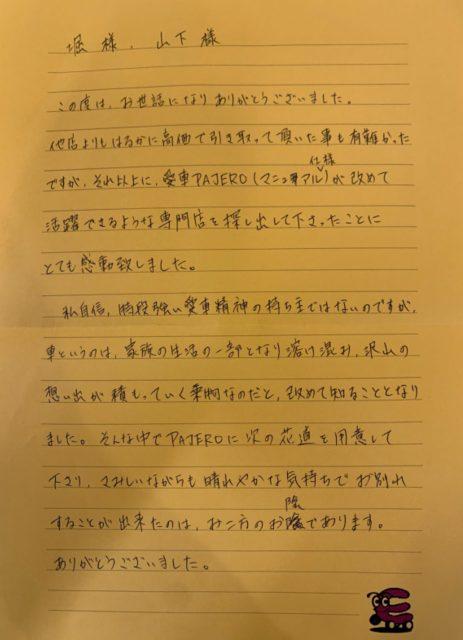 堀様、山下様
この度は、お世話になりありがとうございました。
他店よりもはるかに高価で引き取って頂いた事も有難かった
ですが、それ以上に、愛車PAJERO(マニュアル仕様)が改めて
活躍できるような専門店を探し出して下さったことに
とても感動致しました。
私自信、特段強い愛車精神の持ち主ではないのですが、
車というのは、家族の生活の一部となり溶け混み、沢山の
想い出が積もっていく乗物なのだと、改めて知ることとなり
ました。そんな中でPAJEROに次の花道を用意して
下さり、さみしいながらも晴れやかな気持ちでお別れ
することが出来たのは、お二方のお陰であります。
ありがとうございました。